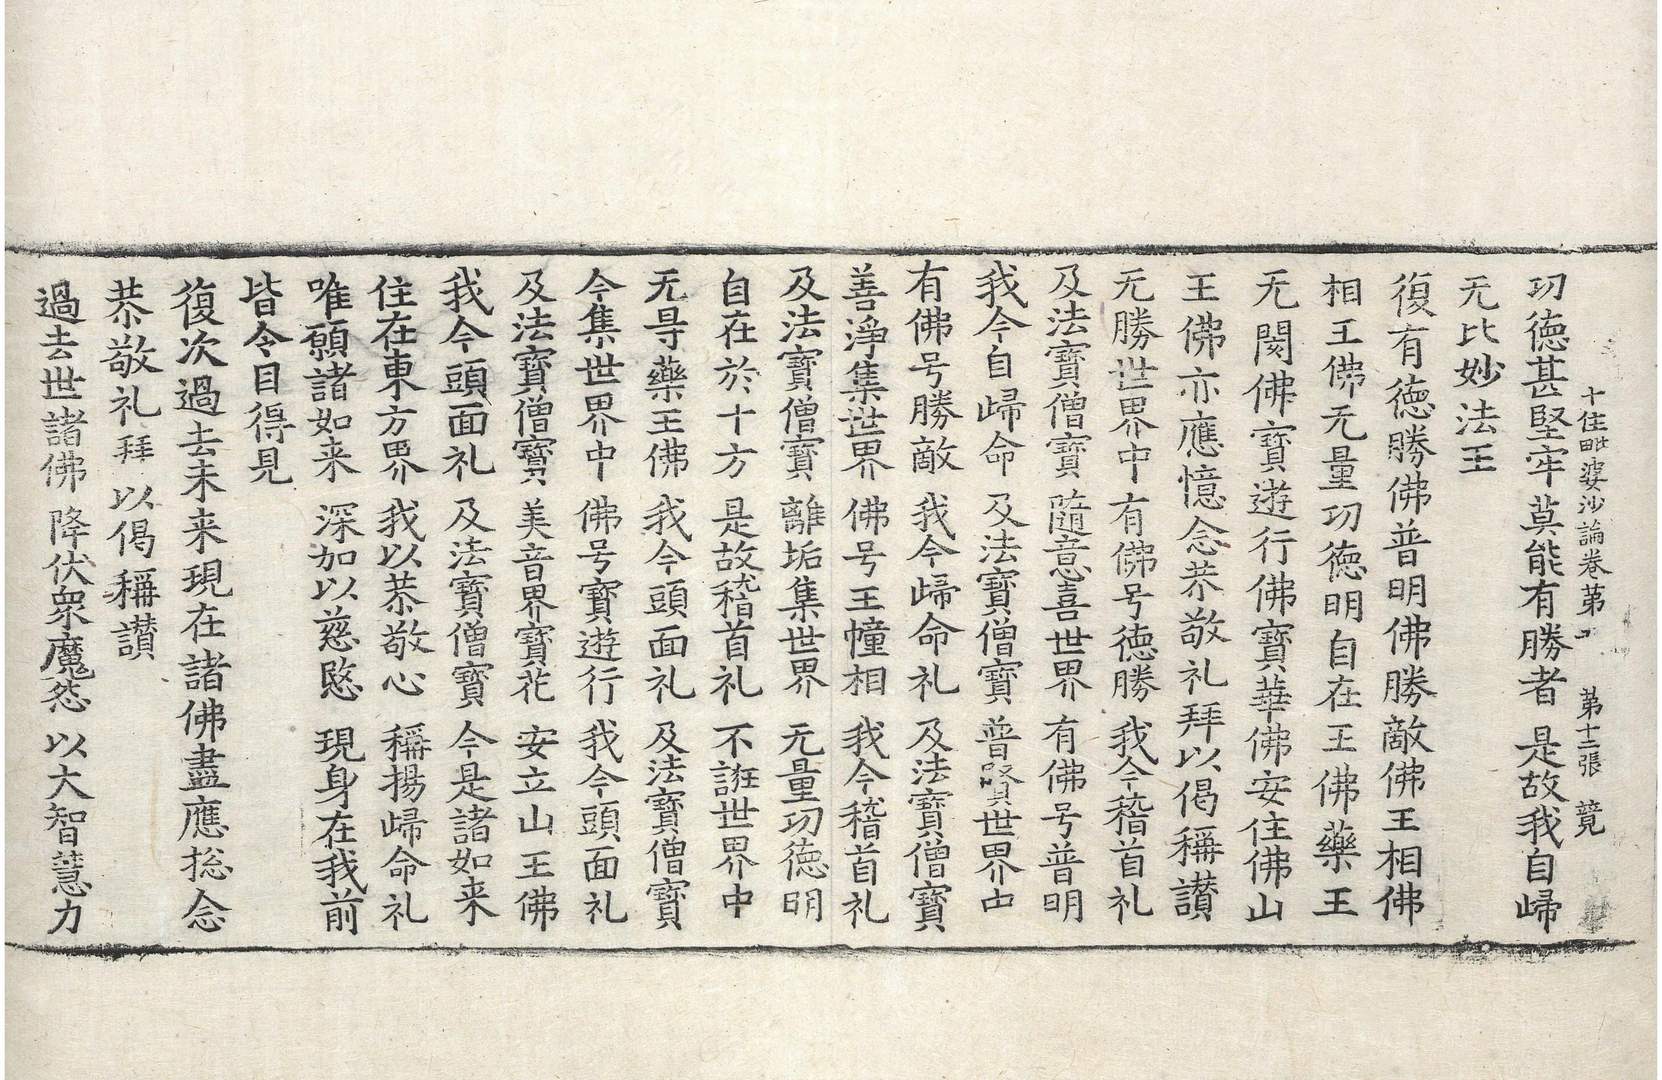 十住毗婆沙論卷第 第十二張 竟
功德甚堅牢 莫能有勝者 是故我自歸
无比妙法王
復有德勝佛普明佛勝敵佛王相佛
相王佛无量功德明自在王佛藥王
无閡佛寶遊行佛寶華佛安住佛山
王佛亦應憶念恭敬礼拜以偈稱讃
无勝世界中 有佛号德勝 我今稽首礼
及法寶僧寶 隨意喜世界 有佛号普明
我今自歸命 及法寶僧寶 普賢世界中
有佛号勝敵 我今歸命礼 及法寶僧寶
善淨集世界 佛号王幢相 我今稽首礼
及法寶僧寶 離垢集世界 无量功德明
自在於十方 是故稽首礼 不誑世界中
无㝵藥王佛 我今頭面礼 及法寶僧寶
今集世界中 佛号寶遊行 我今頭面礼
及法寶僧寶 美音界寶花 安立山王佛
我今頭面礼 及法寶僧寶 今是諸如来
住在東方界 我以恭敬心 稱揚歸命礼
唯願諸如来 深加以慈愍 現身在我前
皆令目得見
復次過去未来現在諸佛盡應揔念
恭敬礼拜以偈稱讃
過去世諸佛 降伏衆魔怨 以大智慧力